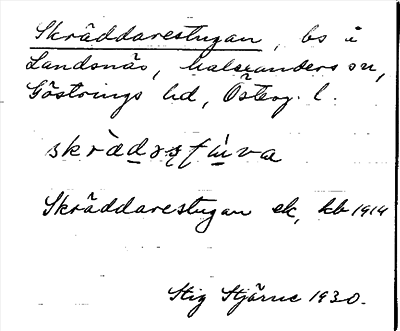 Skräddarestugan, bs i
Landsnäs, Malexanders sn,
Göstrings hd, Österg. l.
Skräddarestugan ek, kb 1914
Stig Stjärne 1930.